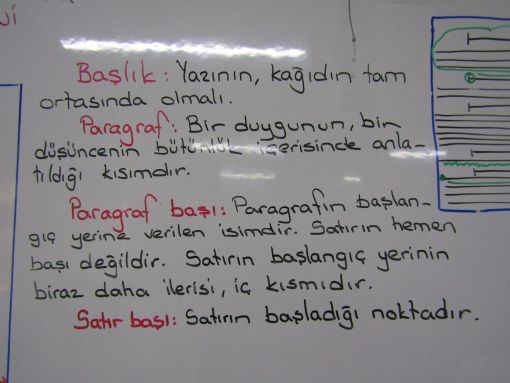 Başlık: Yazının, kağıdın tam
ortasında olmalı.
Paragraf: Bir duygunun, bir
düşüncenin bütünlük içerisinde anla-
tıldığı kısımdır.
Paragraf başı: Paragrafın başlan-
gıç yerine verilen isimdir. Satırın hemen
başı değildir. Satırın başlangıç yerinin
biraz daha ilerisi, iç kısmıdır.
Satır başı: Satırın başladığı noktadır.